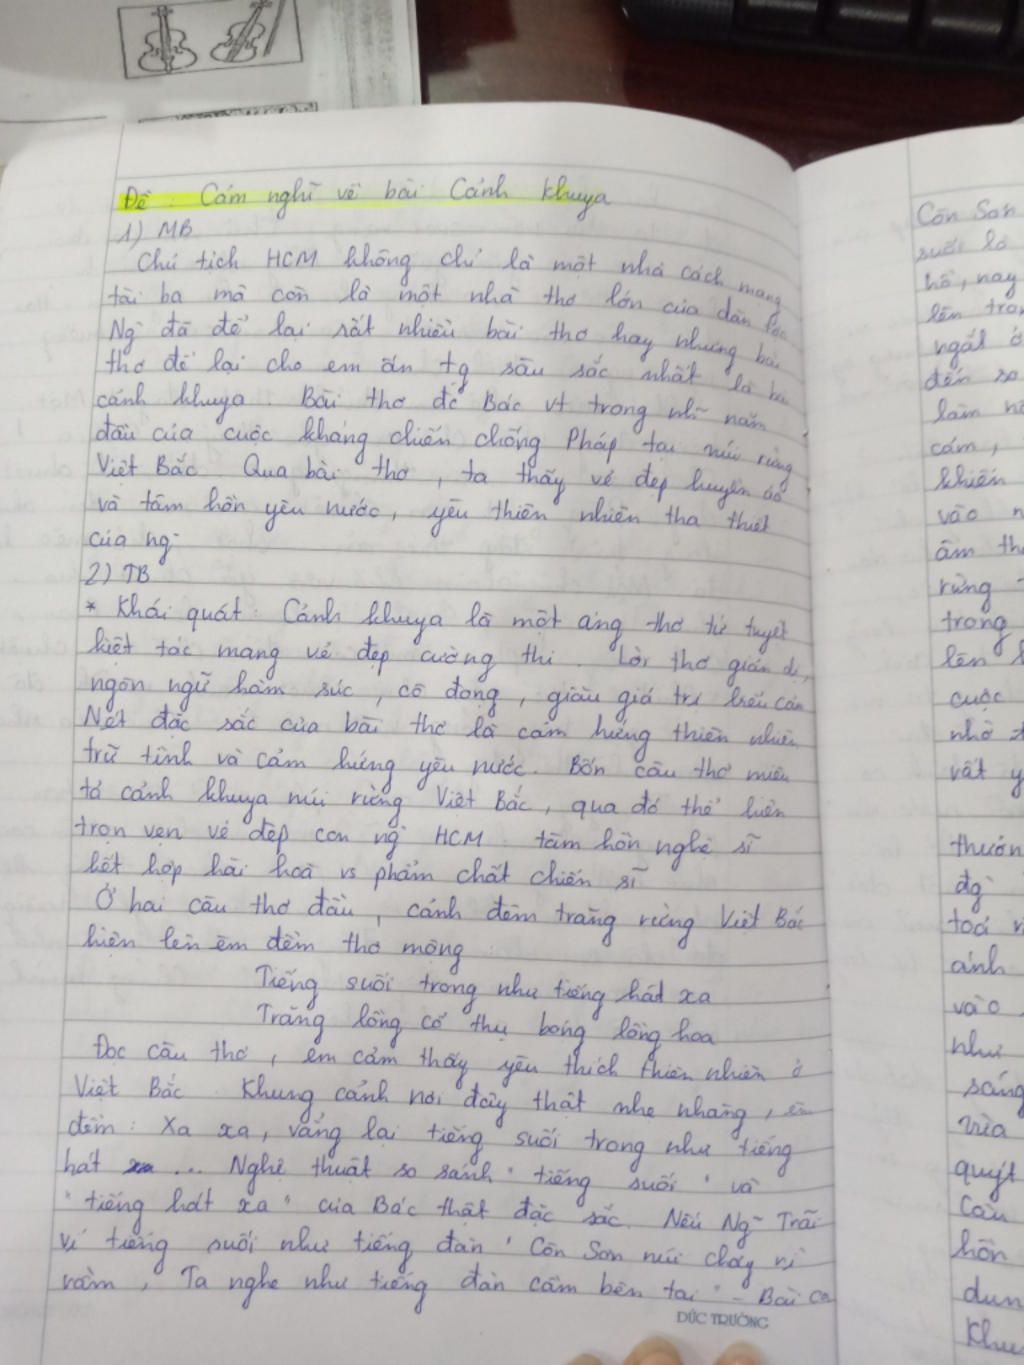 Đề: Cảm nghĩ về bài Cảnh khuya
1) MB
Chủ tịch HCM không chỉ là một nhà cách mạng
tài ba mà còn là một nhà thơ lớn của dân tộc
Ng` đã để lại rất nhiều bài thơ hay nhưng bài
thơ để lại cho em ấn tg sâu sắc nhất là bài
cảnh khuya. Bài thơ đc Bác vt trong nh~ năm
đầu của cuộc kháng chiến chống Pháp tại núi rừng
Việt Bắc. Qua bài thơ, ta thấy vẻ đẹp huyền ảo
và tâm hồn yêu nước, yêu thiên nhiên tha thiết
của ng`
2) TB
* Khái quát: Cảnh khuya là một áng thơ tứ tuyệt
kiệt tác mang vẻ đẹp cường thi. Lời thơ giản dị,
ngôn ngữ hàm súc, cô đọng, giàu giá trị biểu cảm
Nét đặc sắc của bài thơ là cảm hứng thiên nhiên
trữ tình và cảm hứng yêu nước. Bốn câu thơ miêu
tả cảnh khuya núi rừng Việt Bắc, qua đó thể hiện
trọn vẹn vẻ đẹp con ng` HCM: tâm hồn nghệ sĩ
kết hợp hài hoà vs phẩm chất chiến sĩ
Ở hai câu thơ đầu, cảnh đêm trăng rừng Việt Bắc
hiện lên êm đềm thơ mộng:
Tiếng suối trong như tiếng hát xa
Trăng lồng cổ thụ bóng lồng hoa
Đọc câu thơ, em cảm thấy yêu thích thiên nhiên ở
Việt Bắc. Khung cảnh nơi đây thật nhẹ nhàng, êm
đềm: Xa xa, vẳng lại tiếng suối trong như tiếng
hát ... Nghệ thuật so sánh "tiếng suối" và
"tiếng hát xa" của Bác thật đặc sắc. Nếu Ng~ Trãi
ví tiếng suối như tiếng đàn "Côn Sơn núi chảy rì
rầm, Ta nghe như tiếng đàn cầm bên tai" - Bài ca
ĐỨC TRƯỜNG
Côn Sơn
suối là
hồ, nay
lên tron
ngát ở
đến so
làm nổ
cảm,
khiến
vào n
âm th
rừng
trong
lên
cuộc
nhờ
vất y
thướn
đg`
toả
ánh
vào
như
sáng
vừa
quýt
Câu
hồn
dun
Khu